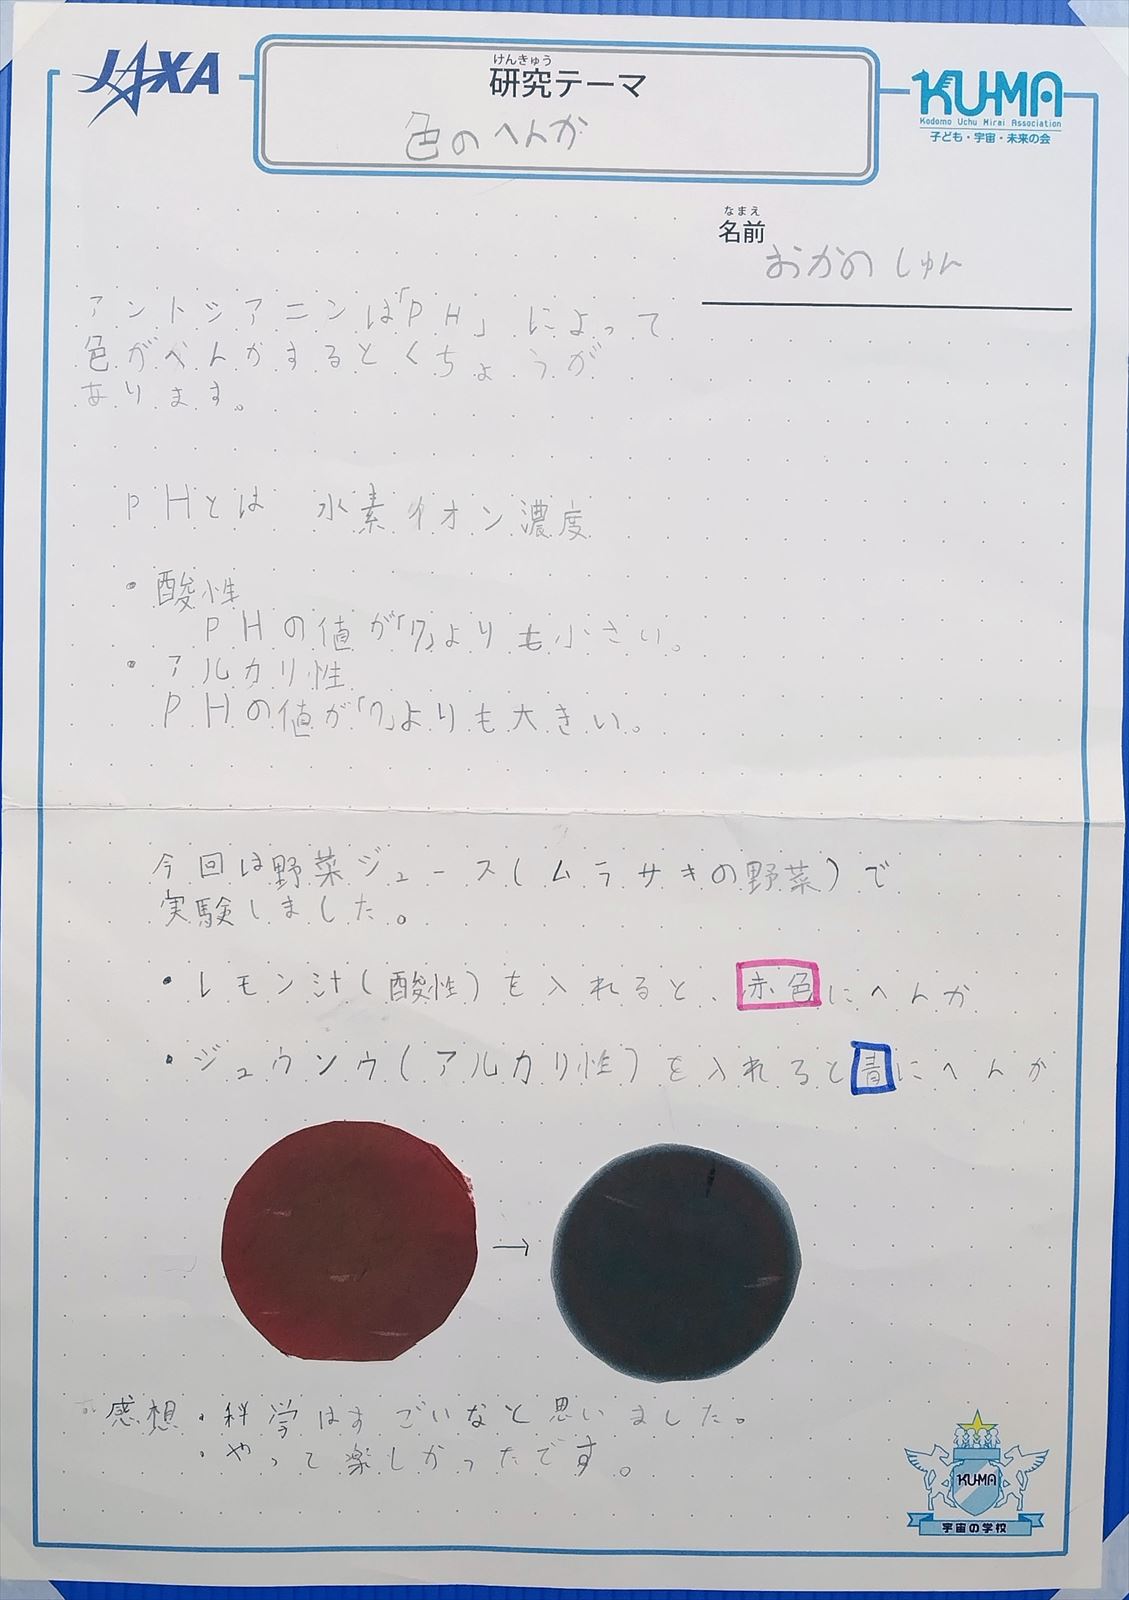 JAXA
けんきゅう
研究テーマ
色のへんか
KU-MA
Kodomo Uchu Mirai Association
子ども・宇宙・未来の会
なまえ
名前
おかの しゅん
アントシアニンは「PH」によって
色がへんかするとくちょうが
あります。
PHとは 水素イオン濃度
・酸性
PHの値が「7」よりも小さい。
・アルカリ性
PHの値が「7」よりも大きい。
今回は野菜ジュース(ムラサキの野菜)で
実験しました。
・レモン汁(酸性)を入れると、赤色にへんか
・ジュウソウ(アルカリ性)を入れると青にへんか
→
感想・科学はすごいなと思いました。
・やって楽しかったです。
KU-MA
宇宙の学校